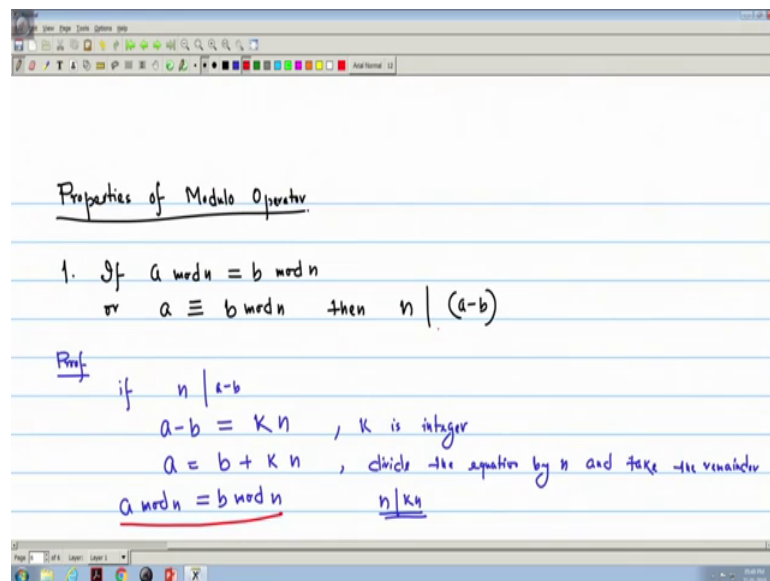 View Page Tools Options Help
Arial Normal 12
Properties of Modulo Operator.
1. If a mod n = b mod n
or a ≡ b mod n then n | (a-b)
Prof
if n | a-b
a-b = Kn , K is integer
a = b + Kn , divide the equation by n and take the remainder
a mod n = b mod n n|Kn
Layer: Layer 1